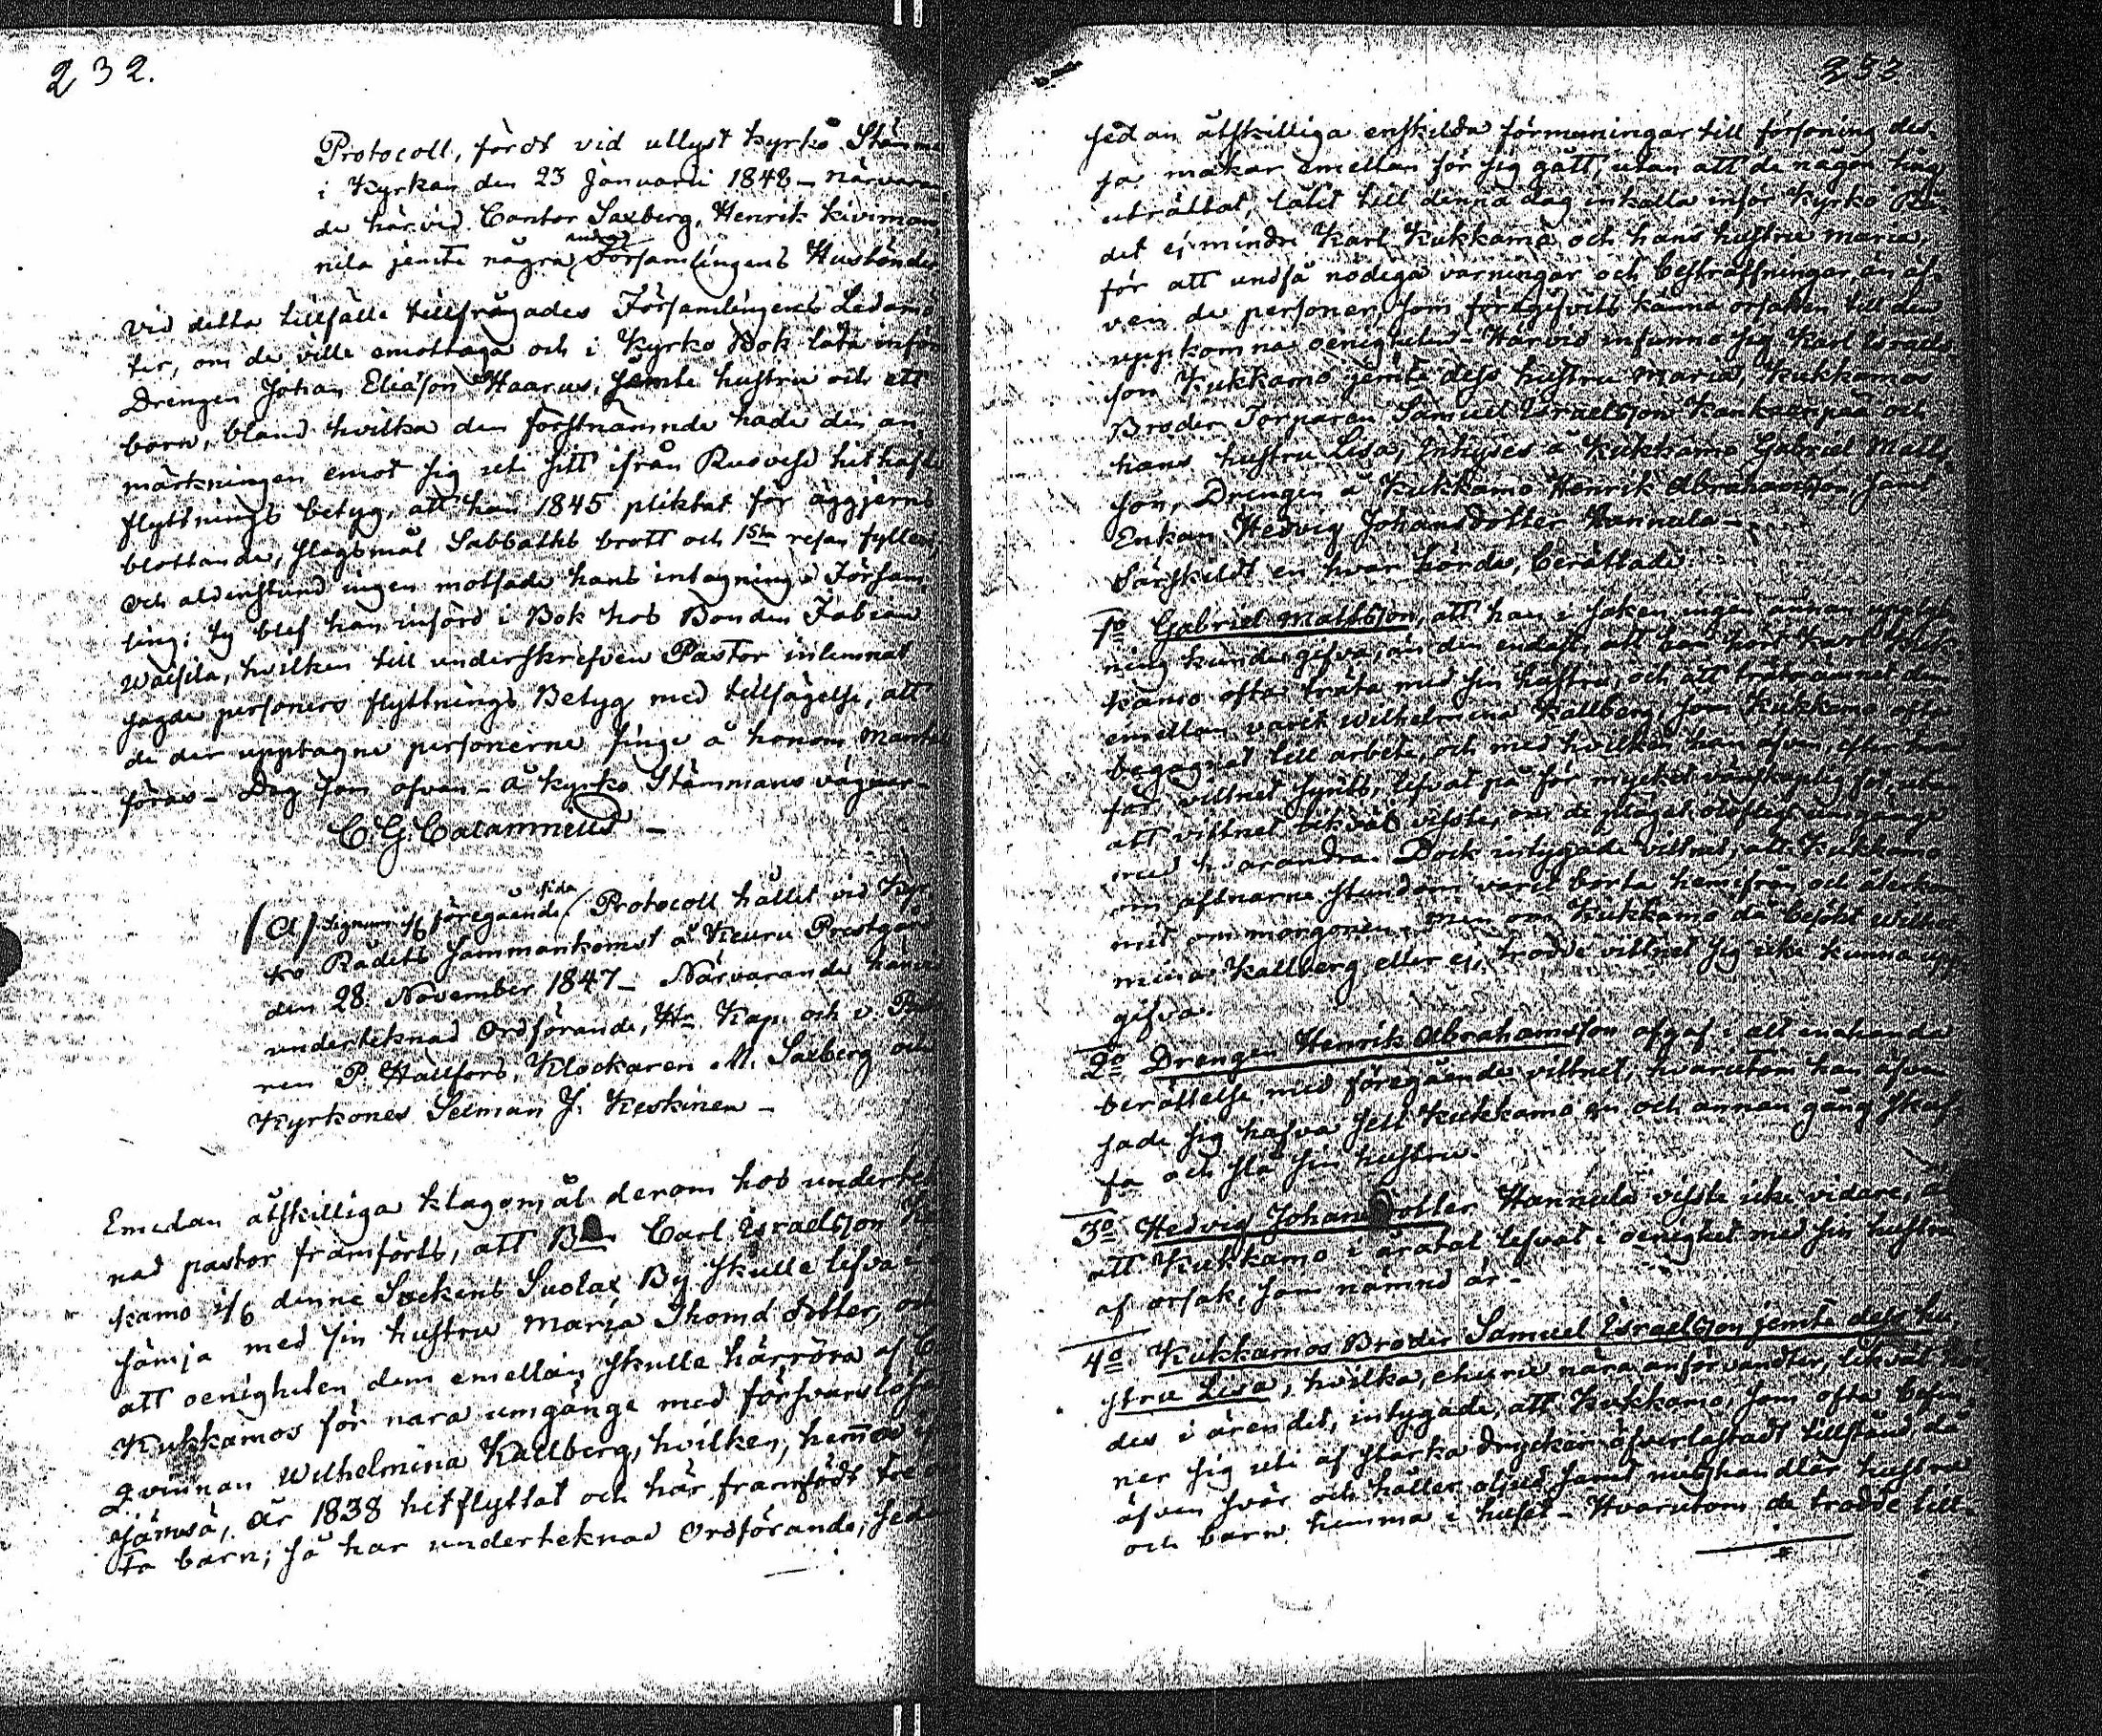 232.
Protocoll, fördt vid utlyst Kyrko Stämma
i Kyrkan den 23 Januarii 1848 – närvaran
de härvid Cantor Saxberg, Henrik Kiviman
nila jemte några andra Församlingens Husbönder
Vid detta tillfälle tillfrågades Församlingens Ledamö
ter, om de ville emottaga och i Kyrko Bok låta inför
Drengen Johan Eliasson Haarus, jemte hustru och ett
barn, bland hvilka den förstnämnde hade den an
märkningen emot sig uti sitt ifrån Ruovesi hithafde
flyttnings betyg, att han 1845 pliktat för äggjerns
blottande, slagsmål Sabbaths brott och 1sta resan fylleri,
och alldenstund ingen motsade hans intagning i Försam
ling; ty blef han införd i Bok hos Bonden Fabian
Waisila, hvilken till underskrefven Pastor inlemnat
sagde personers flyttnings Betyg med tillsägelse, att
de der upptagne personerne finge å honom mantals
föras – Dag som ofvan – å Kyrko Stämmans vägnar –
C. G. Calamnius –
(a) Signum föregående sida / Protocoll hållet vid Kyr
ko Rådets Sammankomst å Keuru Prestgård
den 28 November 1847 – Närvarande härvid
undertecknad Ordförande, Hr Kap. och v. Pa
ren P. Hallfors, Klockaren M. Saxberg och
Kyrkones Sexman J. Keskinen –
Emedan åtskilliga klagomål derom hos undertek
nad pastor framförts, att Bn Carl Israelsson Kuk
kamo i denne Sockens Suolax By skulle lefva i o
sämja med sin hustru Maria Thomd dotter, och
att oenigheten dem emellan skulle härröra af C
Kukkamos för nara umgänge med försvarslösa
Qvinnan Wilhelmina Kallberg, hvilken, hemma i
Jämsä, år 1838 hitflyttat och här framfödt tre o
ta barn; så har undertecknad Ordförande, sed
253
sedan åtskilliga enskilda förmaningar till försoning des
sa makar emellan för sig gått, utan att de någon ting
uträttat, låtit till denna dag inkalla inför Kyrko Rå
det ej mindre Karl Kukkamo och hans hustru Maria,
för att undfå nödiga varningar och bestraffningar än äf
ven de personer, som föregifvits känna orsaken till den
uppkomna oenigheten – Härvid infunno sig Karl Israels
son Kukkamo jemte dess hustru Maria, Kukkamos
Broder Torparen Samuel Israelsson Kankaanpää och
hans hustru Lisa, Inhyses å Kukkamo Gabriel Matts
son, Drengen å Kukkamo Henrik Abrahamsson samt
Enkan Hedvig Johansdotter Hannula –
Särskildt en hvar hörde, berättade:
1o Gabriel Mattsson, att han i saken ingen annan upplys
ning kunde gifva, än den endast, att han hört Karl Kuk
kamo ofta träta med sin hustru, och att träteämnet dem
emellan varit Wilhelmina Kallberg, som Kukkamo ofta
begagnat till arbete, och med hvilken han äfven, efter hvad
för vittnet synts, lefvat på för mycket vänskaplig fot, utan
att vittnet likväl visste, om de plägat olofligt umgänge
med hvarandra. Dock intygade vittnet, att Kukkamo
om aftnarne stundom varit borta hemifrån och återkom
mit om morgonen, men om Kukkamo då besökt Wilhel
mina Kallberg eller ej, trodde vittnet sig icke kunna upp
gifva.
2o Drengen Henrik Abrahamsson afgaf i allt enahanda
berättelse med föregående vittnet, hvarutom han äfven
sade sig hafva sett Kukkamo en och annan gång skuf
fa och slå sin hustru.
3o Hedvig Johansdotter Hannula visste icke vidare, än
att Kukkamo i åratal lefvat i oenighet med sin hustru
af orsak, som nämnd är –
4o Kukkamos Broder Samuel Israelsson jemte dess hu
stru Lisa, hvilka, ehuru nära anförvandter, likväl hör
des i ärendet, intygade, att Kukkamo, som ofta befin
ner sig uti af starka drycker öfverlastadt tillstånd då
äfven svär och håller oljud samt misshandlar hustru
och barn hemma i huset – Hvarutom de trodde till